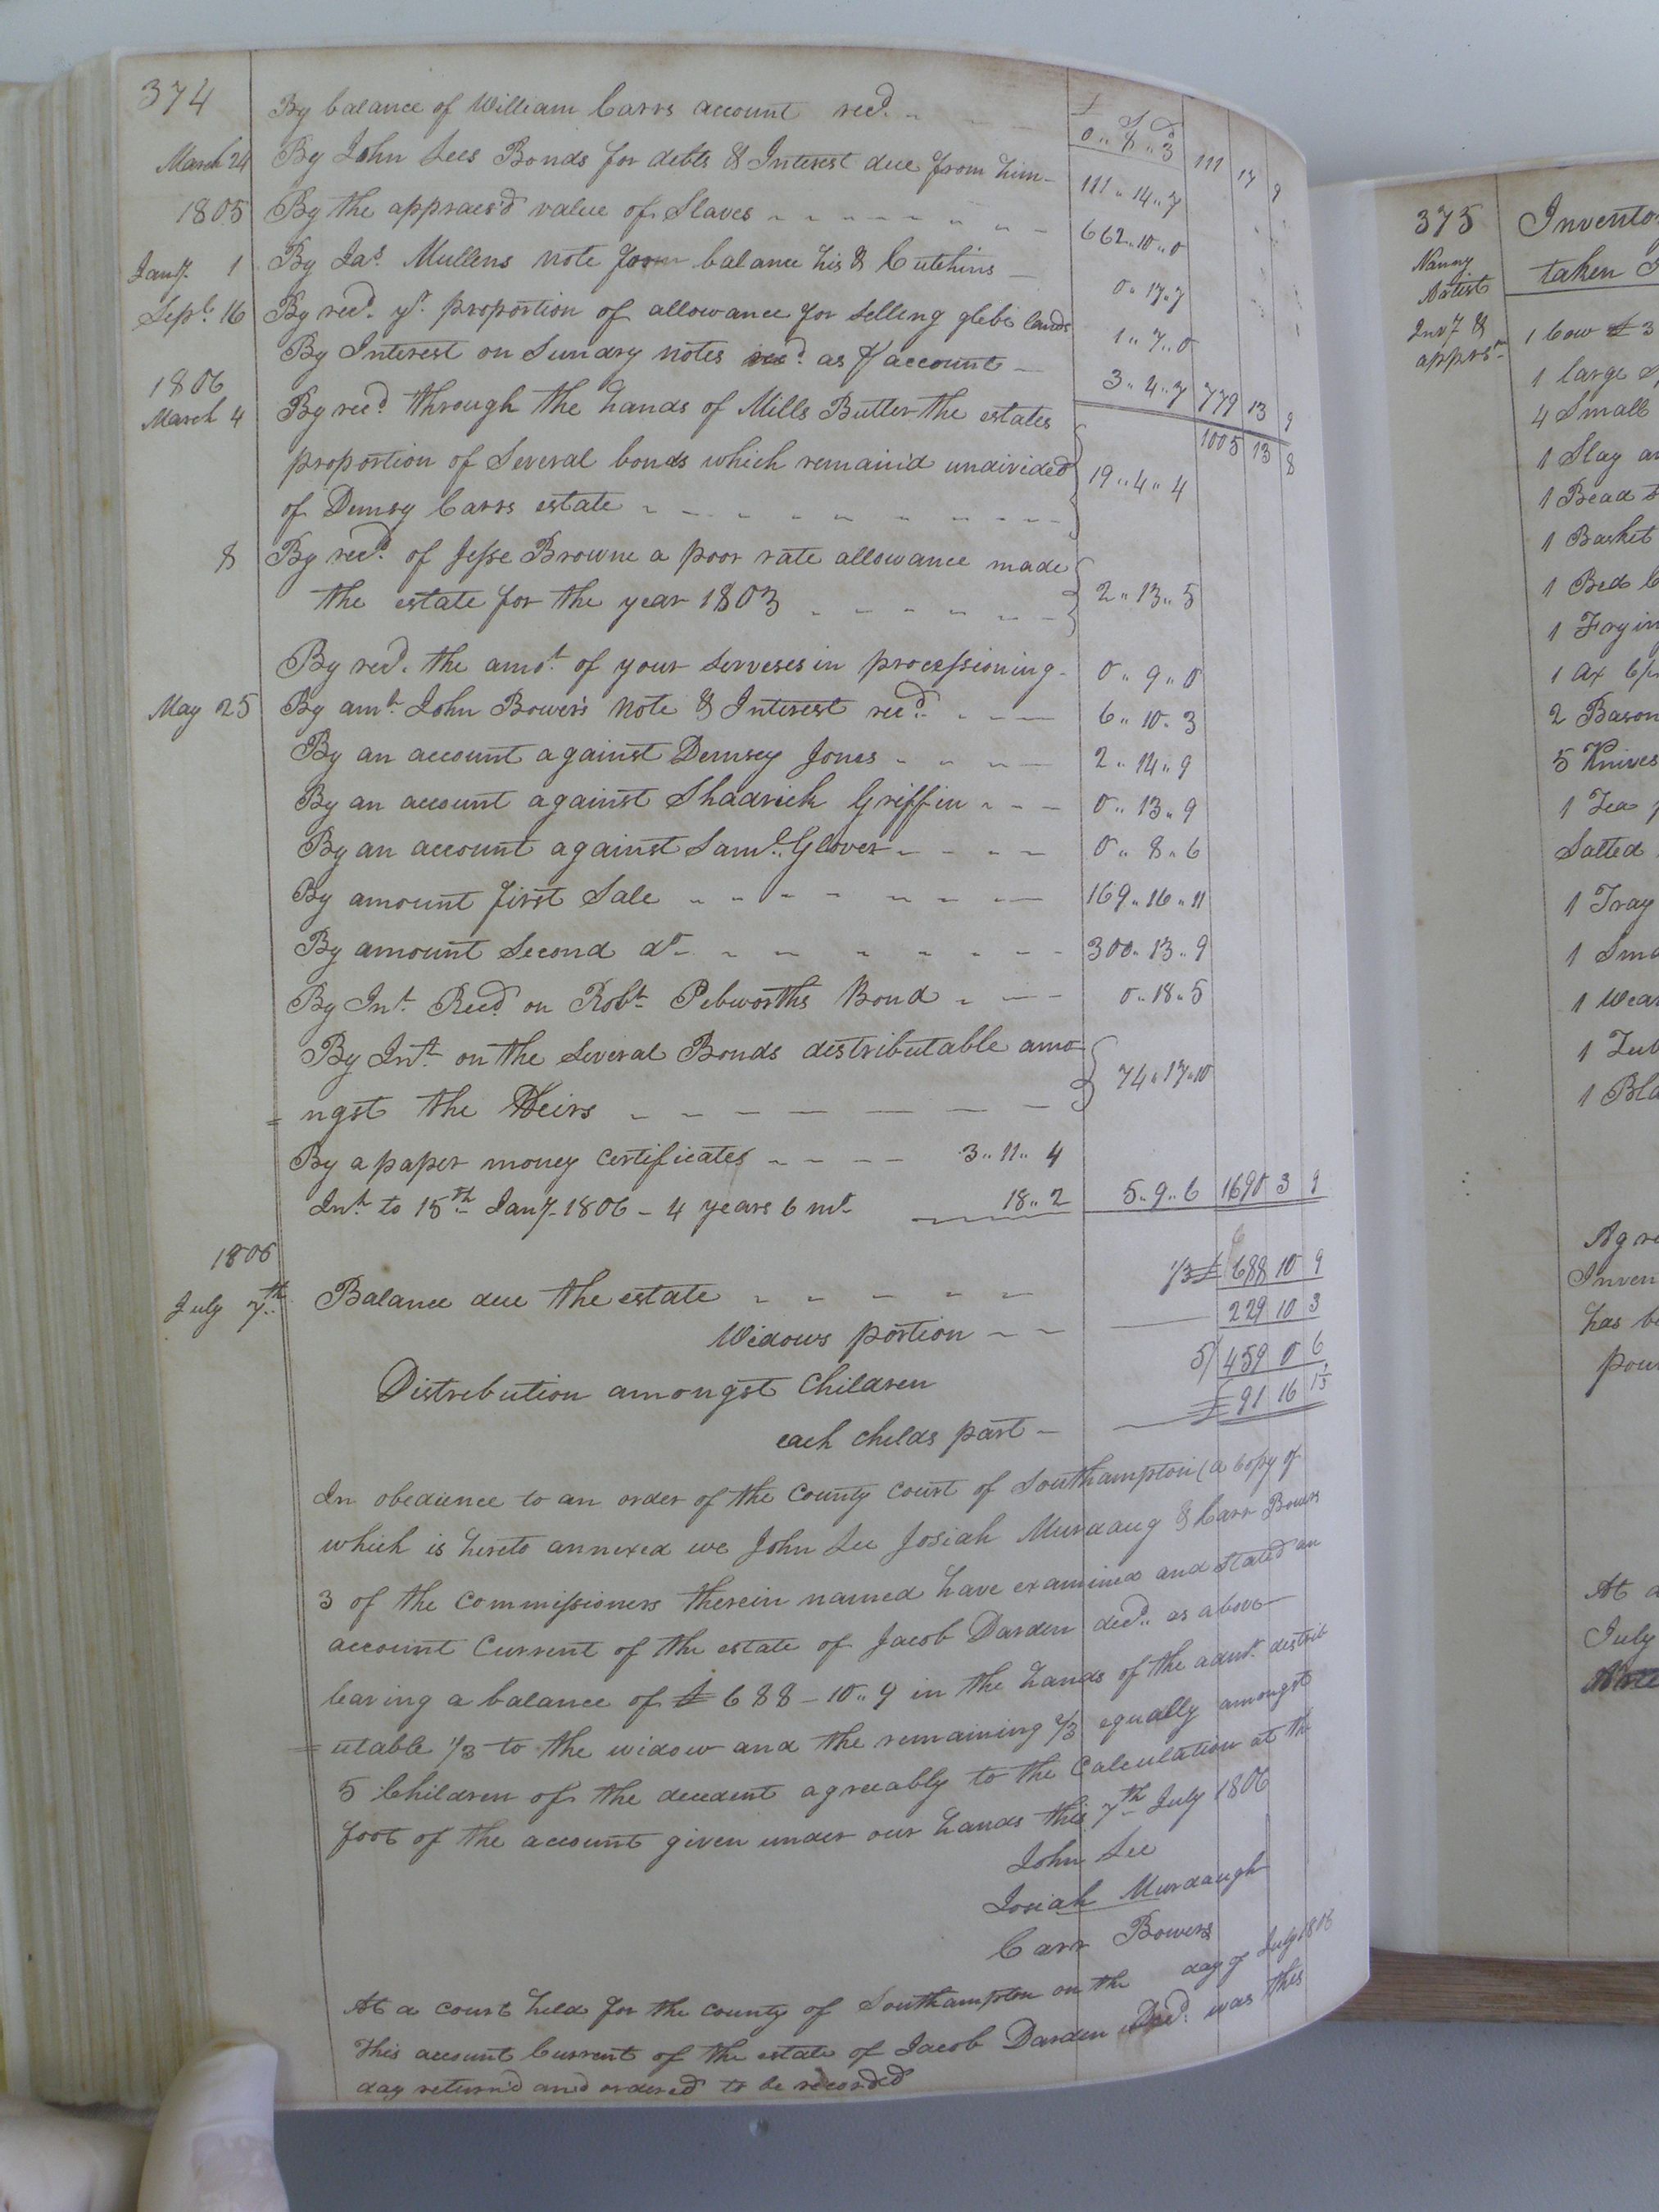 374
£ S D
By balance of William Carrs account recd. 0 .. 8 .. 3 111 17 9
March 24 By John Lees Bonds for debts & Interest due from him 111 .. 14 .. 7
1805 By the appraes'd value of Slaves 662 .. 10 .. 0
Jany. 1 By Jas. Mullens note from balance his & Cutchins 0 .. 17 .. 7
Sept. 16 By recd. yr. proportion of allowance for selling glebe lands 1 .. 7 .. 0
By Interest on Sundry notes recd. as # account 3 .. 4 .. 7 779 13 9
1806 1005 13 8
March 4 By recd through the hands of Mills Butler the estates
proportion of Several bonds which remain'd undivided 19 .. 4 .. 4
of Demsy Carrs estate
8 By recd. of Jesse Browne a poor rate allowance made
the estate for the year 1803 2 .. 13 .. 5
By recd. the amot. of your Serveses in processioning 0 .. 9 .. 0
May 25 By amt. John Bowers note & Interest recd. 6 .. 10 .. 3
By an account against Demsey Jones 2 .. 14 .. 9
By an account against Shadrick Griffin 0 .. 13 .. 9
By an account against Saml. Glover 0 .. 8 .. 6
By amount first Sale 169 .. 16 .. 11
By amount Second do 300 .. 13 .. 9
By Int. Recd on Robt Pebworths Bond 0 .. 18 .. 5
By Int. on the several Bonds distributable amo-
= ngst the Heirs 74 .. 17 .. 10
By a paper money Certificates 3 .. 11 .. 4
Int. to 15th Jany. 1806 - 4 years 6 mt 18 .. 2 5 .. 9 .. 6 1690 3 9
1806
July 7th Balance due the estate 1/3 £ 688 10 9
Widows portion 229 10 3
Distribution amongst Children 5/ 459 0 6
each childs part £ 91 16 1
In obedience to an order of the County Court of Southampton (a Copy of
which is hereto annexed we John Lee Josiah Murdaug & Carr Bowers
3 of the Commissioners therein named have examined and Stated an
account Current of the estate of Jacob Darden decd. as above
leaving a balance of £ 688 - 10 .. 9 in the hands of the admr. distrib
= utable 1/3 to the widow and the remaining 2/3 equally amongst
5 Children of the decedent agreeably to the Calculation at the
foot of the account given under our hands this 7th July 1806
John Lee
Josiah Murdaugh
Carr Bowers
At a Court held for the County of Southampton on the day of July 1806
This account Current of the estate of Jacob Darden Decd. was this
day return'd and ordered to be recorded
375 Invento
Nanny taken
Notist
Invy &
apprst 1 Cow £ 3
1 large
4 Small
1 Slay
1 Bead
1 Basket
1 Bed
1 Fryin
1 Ax
2 Bason
5 Knives
1 Tea
Salted
1 Tray
1 Sma
1 Wear
1 Tub
1 Bla
Agre
Inven
has be
poun
At a
July